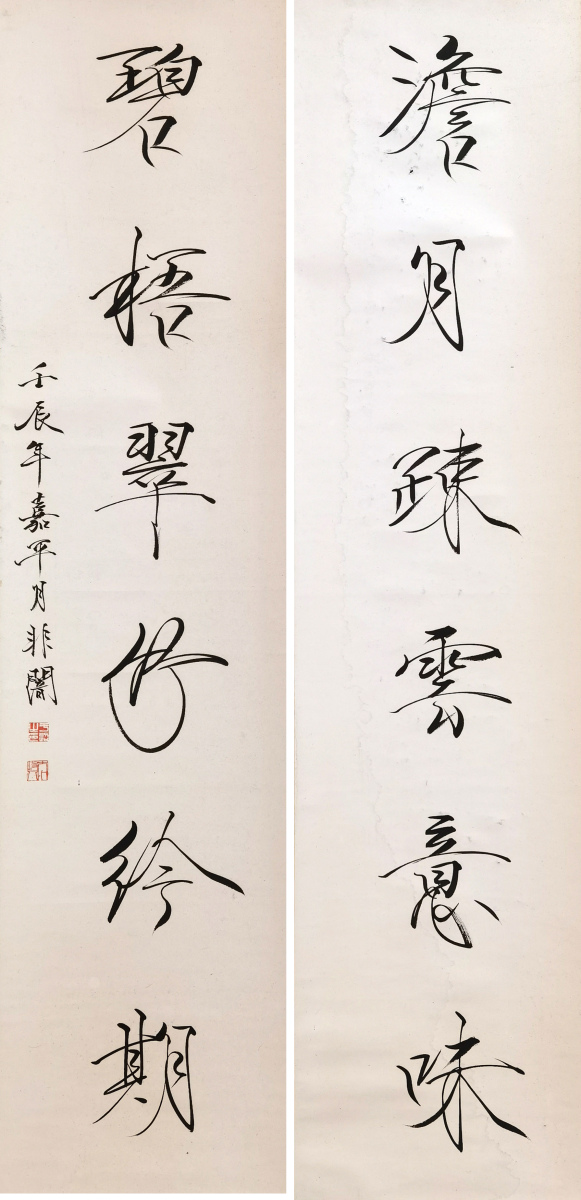 澹月疎雲意味
碧梧翠竹紟期
壬辰年嘉平月非闇